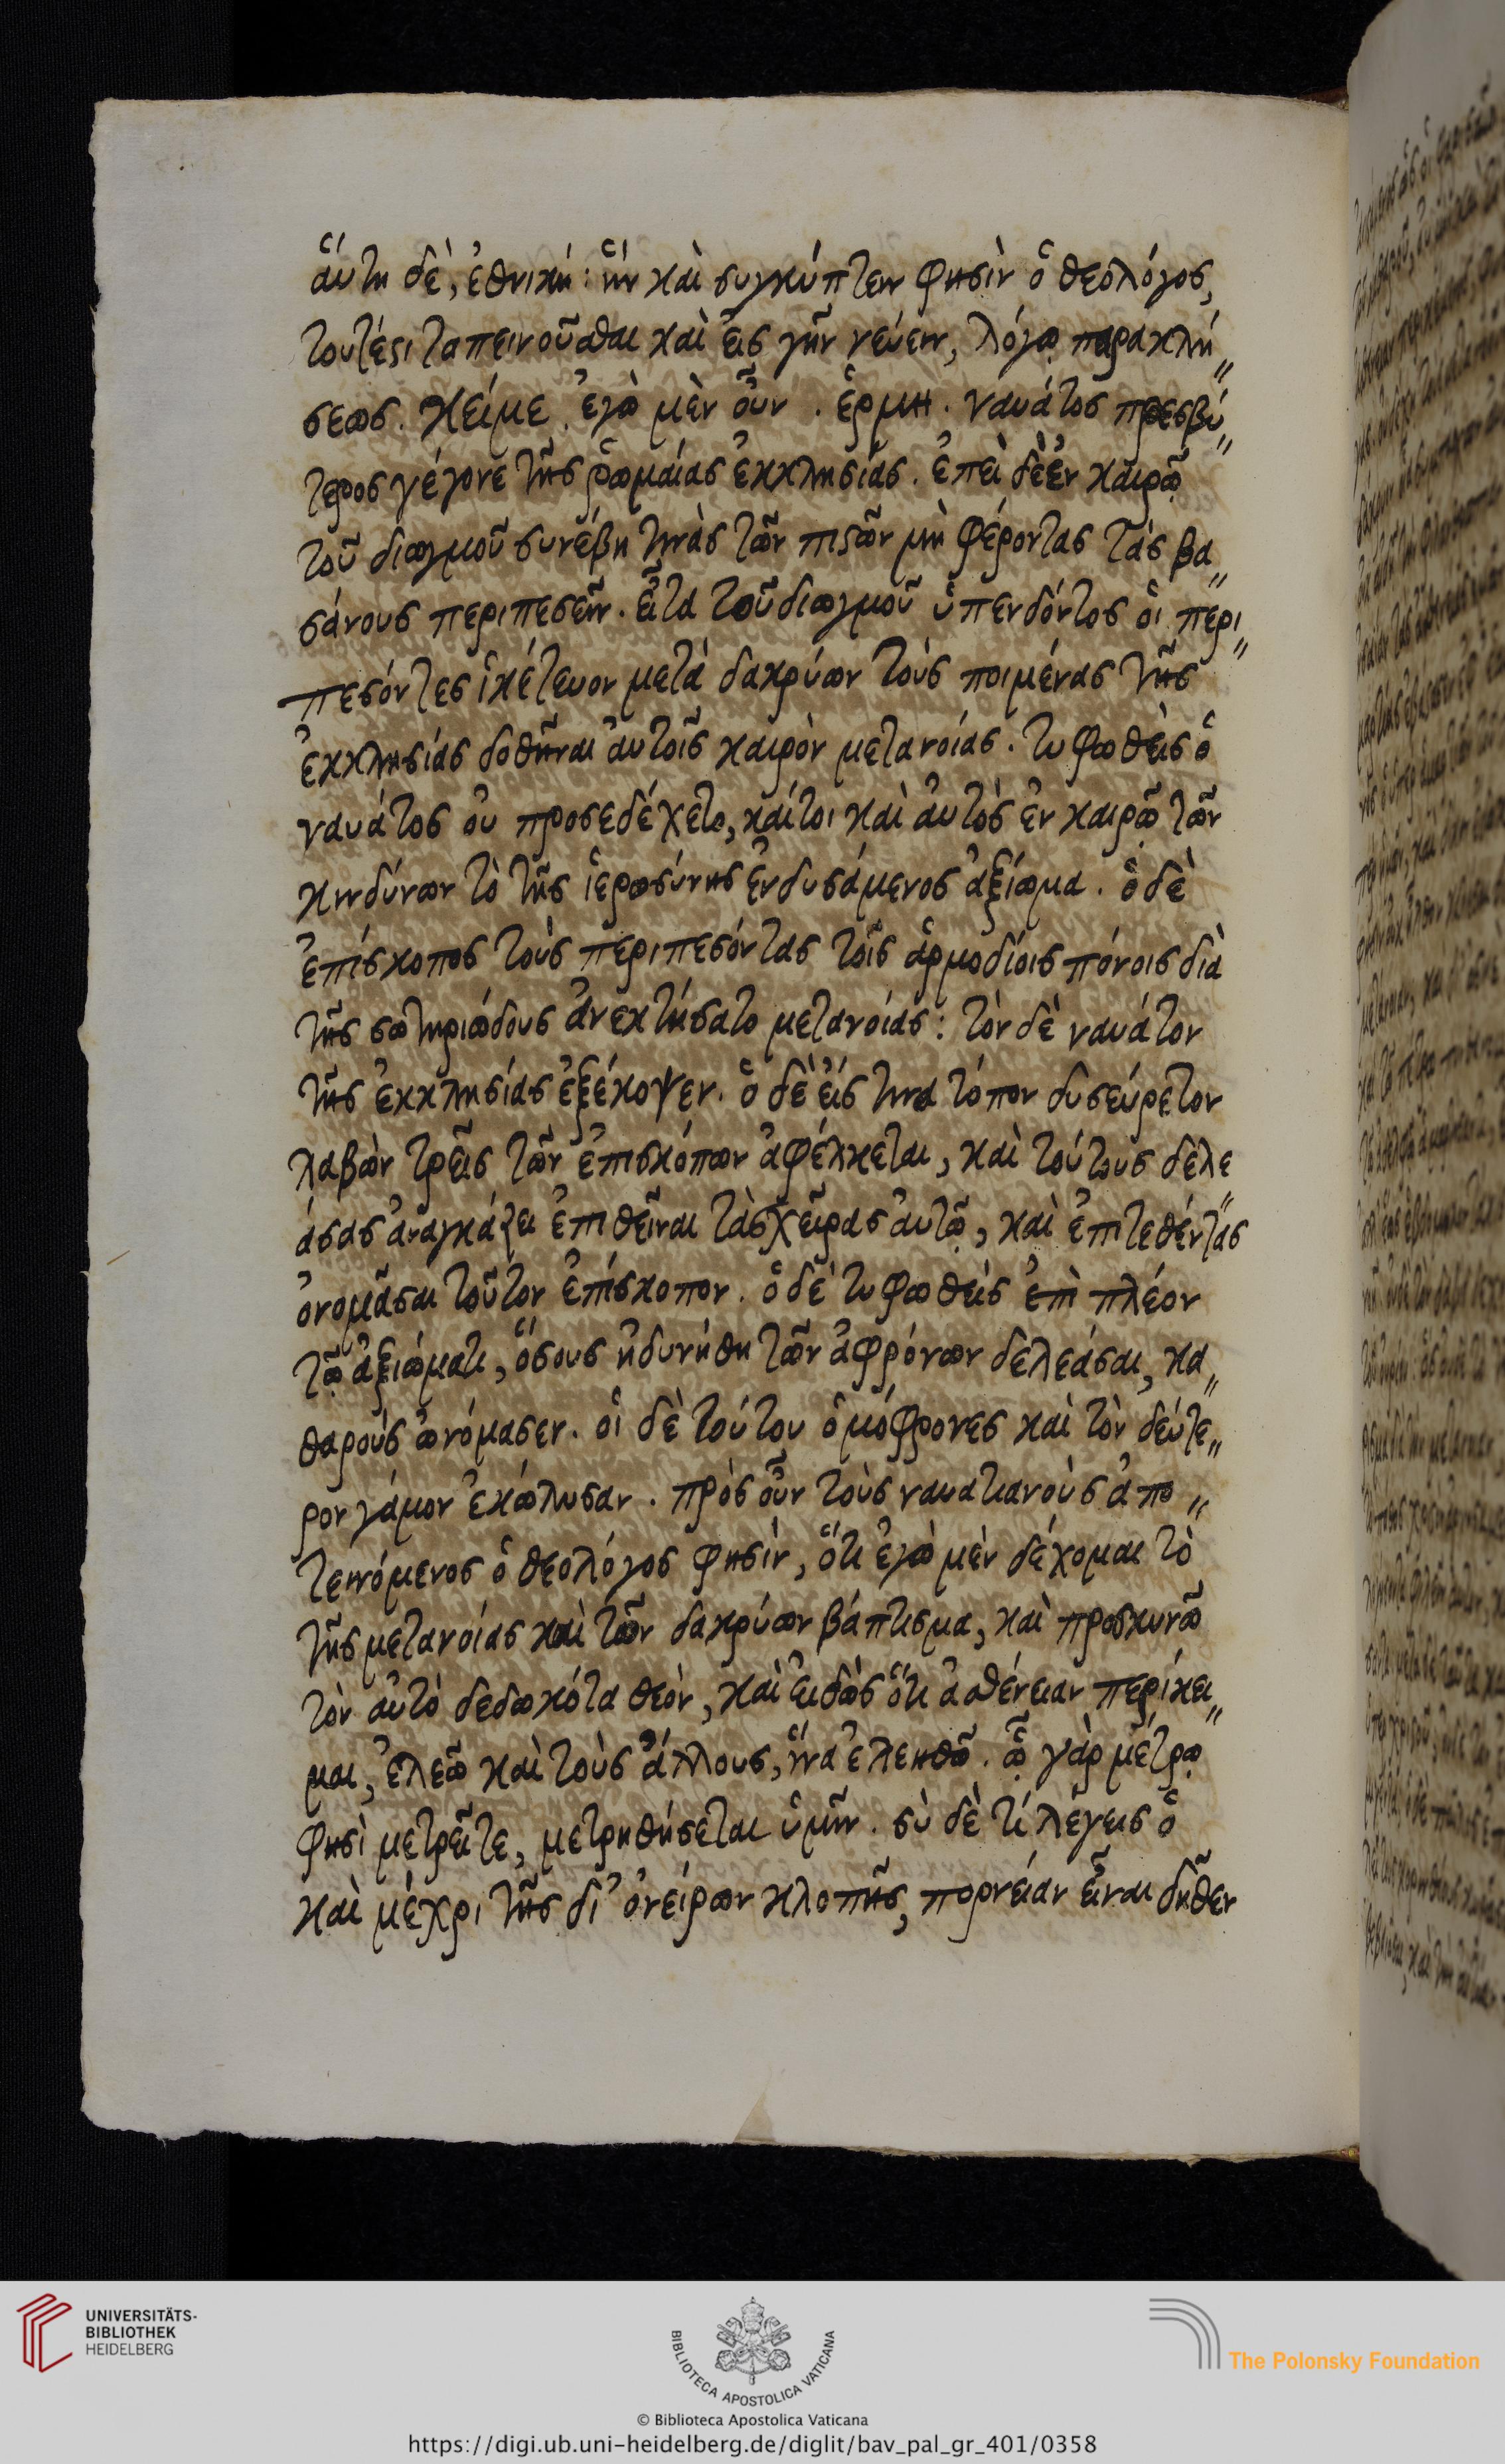 ἅυτη δὲ, ἐθνική: ἣν καὶ συγκύπτειν φησὶν ὁ θεολόγος,
τουτέστι ταπεινοῦσθαι καὶ εἰς γῆν νεύειν, λόγω παρακλή„
σεως. Κείμε. ἐγὼ μὲν οὖν. ἑρμη. ναυάτος πρεσβύ„
τερος γέγονε τῆς ῥωμαίας ἐκκλησίας. ἐπεὶ δὲ ἐν καιρῶ
τοῦ διωγμοῦ συνέβη τινὰς τῶν πιστῶν μὴ φέροντας τὰς βα„
σάνους περιπεσεῖν. εἶτα τοῦ διωγμοῦ ὑπενδόντος ὁι περι„
πεσόντες ἱκέτευον μετὰ δακρύων τοὺς ποιμένας τῆς
ἐκκλησίας δοθῆναι ἀυτοῖς καιρὸν μετανοίας. τυφωθεὶς ὁ
ναυάτος ὀυ προσεδέχετο, καίτοι καὶ ἀυτὸς ἐν καιρῶ τῶν
κινδύνων τὸ τῆς ἱερωσύνης ἐνδυσάμενος ἀξίωμα. ὁ δὲ
ἐπίσκοπος τοὺς περιπεσόντας τοῖς ἁρμοδίοις πόνοις διὰ
τῆς σωτηριώδους ἀνεκτήσατο μετανοίας: τὸν δὲ ναυάτον
τῆς ἐκκλησίας ἐξέκοψεν. ὁ δὲ εἴς τινα τόπον δυσεύρετον
λαβὼν τρεῖς τῶν ἐπισκόπων ἀφέλκεται, καὶ τούτους δελε„
άσας ἀναγκάζει ἐπιθεῖναι τὰς χεῖρας ἀυτῶ, καὶ ἐπιτεθέντας
ὀνομᾶσαι τοῦτον ἐπίσκοπον. ὁ δὲ τυφωθεὶς ἐπὶ πλέον
τῶ ἀξιώματι, ὅσους ἠδυνήθη τῶν ἀφρόνων δελεάσαι, κα„
θαροὺς ὠνόμασεν. οἱ δὲ τούτου ὁμόφρονες καὶ τὸν δεύτε„
ρον γάμον ἐκώλυσαν. πρὸς οὖν τοὺς ναυατιανοὺς ἀπο„
τεινόμενος ὁ θεολόγος φησὶν, ὅτι ἐγὼ μὲν δέχομαι τὸ
τῆς μετανοίας καὶ τῶν δακρύων βάπτισμα, καὶ προσκυνῶ
τὸν ἀυτὸ δεδωκότα θεὸν, καὶ ἐιδὼς ὅτι ἀσθένειαν περίκει„
μαι, ἐλεῶ καὶ τοὺς ἄλλους, ἵνα ἐλεηθῶ. ὧ γὰρ μέτρω
φησὶ μετρεῖτε, μετρηθήσεται ὑμῖν. σὺ δὲ τί λέγεις ὁ
καὶ μέχρι τῆς δι' ὀνείρων κλοπῆς, πορνείαν εἶναι δῆθεν
UNIVERSITÄTS-
BIBLIOTHEK
HEIDELBERG
BIBLIOTECA APOSTOLICA VATICANA
The Polonsky Foundation
© Biblioteca Apostolica Vaticana
https://digi.ub.uni-heidelberg.de/diglit/bav_pal_gr_401/0358